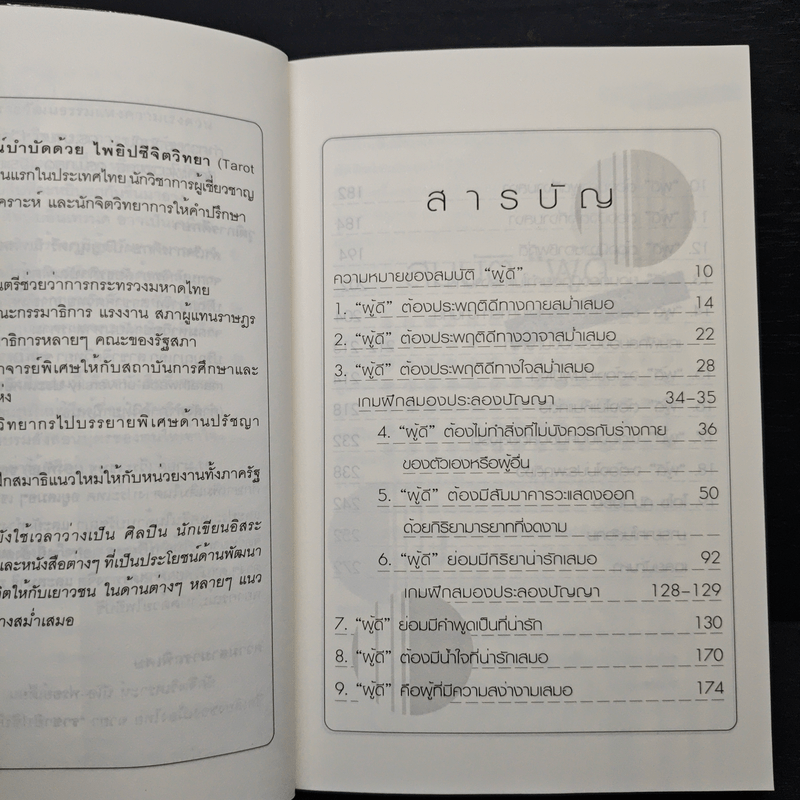 น์บำบัดด้วย ไพ่ยิปซีจิตวิทยา (Tarot
นแรกในประเทศไทย นักวิชาการผู้เชี่ยวชาญ
คราะห์ และนักจิตวิทยาการให้คำปรึกษา
นตรีช่วยว่าการกระทรวงมหาดไทย
ณะกรรมาธิการ แรงงาน สภาผู้แทนราษฎร
าธิการหลายๆ คณะของรัฐสภา
าจารย์พิเศษให้กับสถาบันการศึกษาและ
ห่ง
วิทยากรไปบรรยายพิเศษด้านปรัชญา
ฝึกสมาธิแนวใหม่ให้กับหน่วยงานทั้งภาครัฐ
ยังใช้เวลาว่างเป็น ศิลปิน นักเขียนอิสระ
และหนังสือต่างๆ ที่เป็นประโยชน์ด้านพัฒนา
จิตให้กับเยาวชน ในด้านต่างๆ หลายๆ แนว
างสม่ำเสมอ
สารบัญ
ความหมายของสมบัติ “ผู้ดี” 10
1. “ผู้ดี” ต้องประพฤติดีทางกายสม่ำเสมอ 14
2. “ผู้ดี” ต้องประพฤติดีทางวาจาสม่ำเสมอ 22
3. “ผู้ดี” ต้องประพฤติดีทางใจสม่ำเสมอ 28
เกมฝึกสมองประลองปัญญา 34-35
4. “ผู้ดี” ต้องไม่ทำสิ่งที่ไม่บังควรกับร่างกาย 36
ของตัวเองหรือผู้อื่น
5. “ผู้ดี” ต้องมีสัมมาคารวะแสดงออก 50
ด้วยกิริยามารยาทที่งดงาม
6. “ผู้ดี” ย่อมมีกิริยาน่ารักเสมอ 92
เกมฝึกสมองประลองปัญญา 128-129
7. “ผู้ดี” ย่อมมีคำพูดเป็นที่น่ารัก 130
8. “ผู้ดี” ต้องมีน้ำใจที่น่ารักเสมอ 170
9. “ผู้ดี” คือผู้ที่มีความสง่างามเสมอ 174